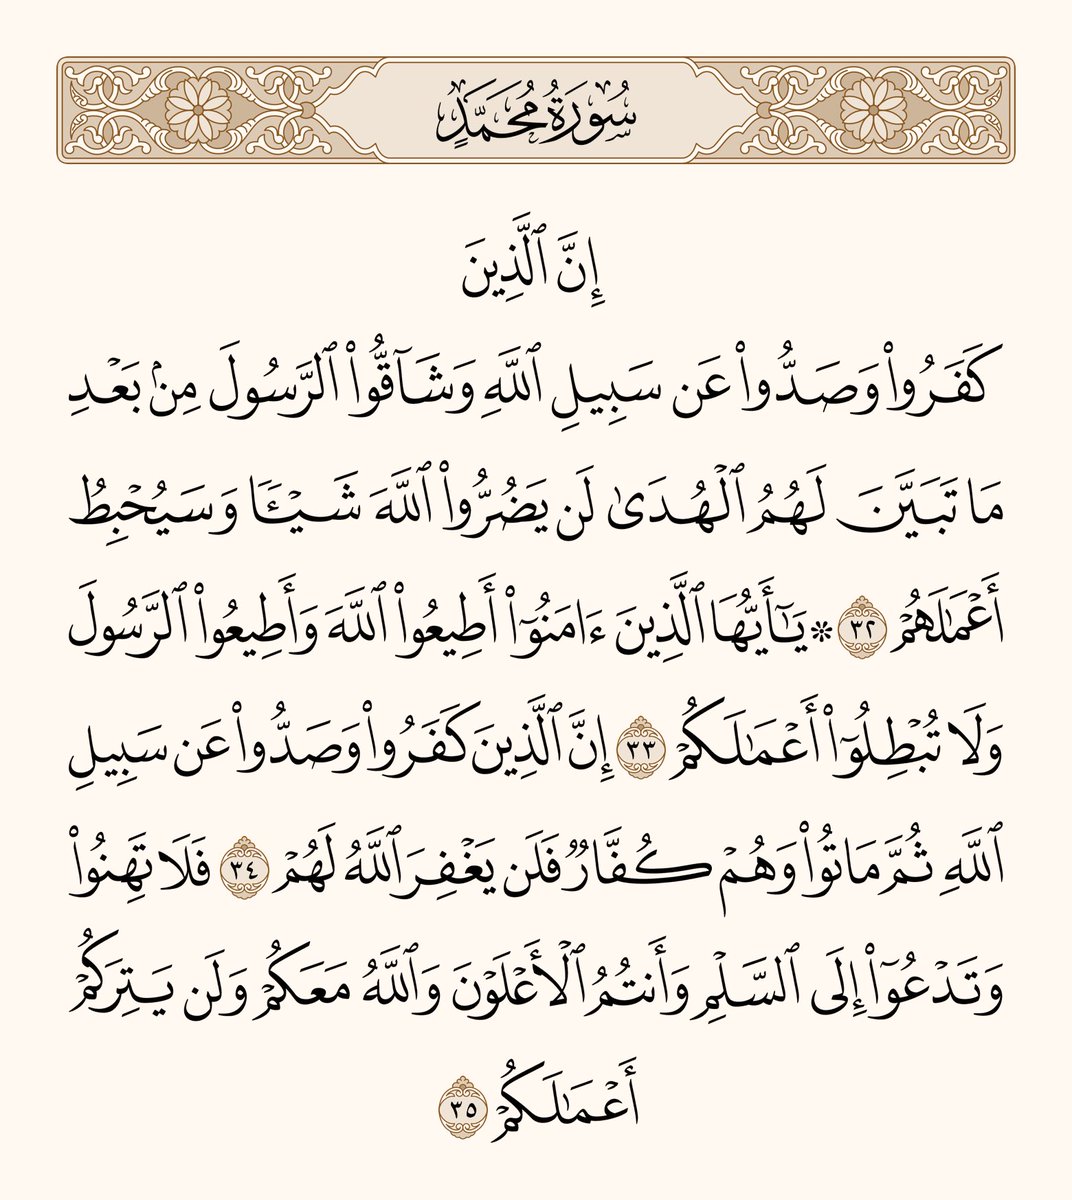 سُورَةُ مُحَمَّدٍ
إِنَّ ٱلَّذِينَ
كَفَرُوا۟ وَصَدُّوا۟ عَن سَبِيلِ ٱللَّهِ وَشَآقُّوا۟ ٱلرَّسُولَ مِنۢ بَعْدِ
مَا تَبَيَّنَ لَهُمُ ٱلْهُدَىٰ لَن يَضُرُّوا۟ ٱللَّهَ شَيْـًٔا وَسَيُحْبِطُ
أَعْمَـٰلَهُمْ ٣٢ ۞ يَـٰٓأَيُّهَا ٱلَّذِينَ ءَامَنُوٓا۟ أَطِيعُوا۟ ٱللَّهَ وَأَطِيعُوا۟ ٱلرَّسُولَ
وَلَا تُبْطِلُوٓا۟ أَعْمَـٰلَكُمْ ٣٣ إِنَّ ٱلَّذِينَ كَفَرُوا۟ وَصَدُّوا۟ عَن سَبِيلِ
ٱللَّهِ ثُمَّ مَاتُوا۟ وَهُمْ كُفَّارٌ فَلَن يَغْفِرَ ٱللَّهُ لَهُمْ ٣٤ فَلَا تَهِنُوا۟
وَتَدْعُوٓا۟ إِلَى ٱلسَّلْمِ وَأَنتُمُ ٱلْأَعْلَوْنَ وَٱللَّهُ مَعَكُمْ وَلَن يَتِرَكُمْ
أَعْمَـٰلَكُمْ ٣٥